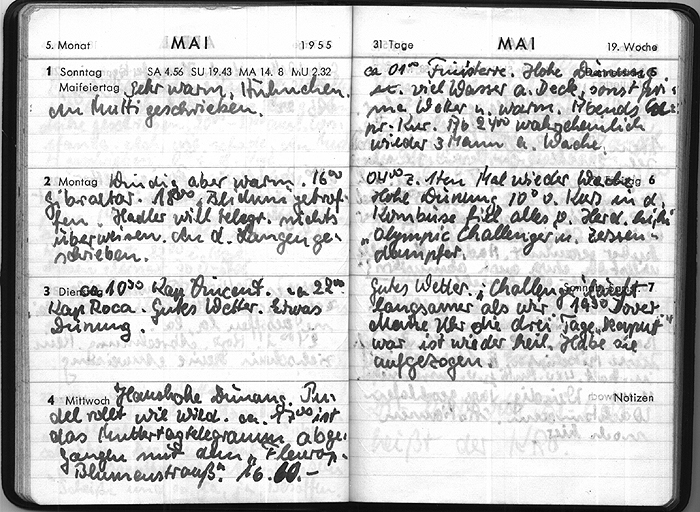 5. Monat MAI 1955
1 Sonntag SA 4.56 SU 19.43 MA 14. 8 MU 2.32
Maifeiertag Sehr warm, Hühnchen.
An Mutti geschrieben.
2 Montag Windig aber warm. 16⁰⁰
Gibraltar. 18⁰⁰ "
fen". Hadler will telegr. nichts
überweisen. An d. Langen ge-
schrieben.
3 Dienstag ca 10³⁰ Kap Vincent. ca 22⁰⁰
Kap Roca. Gutes Wetter. Etwas
Dünung.
4 Mittwoch Haushohe Dünung. Pu-
del rollt wie wild. ca. 17⁰⁰ ist
das Muttertagtelegramm abge-
gangen mit dem "Fleurop-
Blumenstrauß". 16.00.–
31 Tage MAI 19. Woche
5
ca 01⁰⁰ Finisterre. Hohe Dünung
viel Wasser a. Deck, sonst
Wetter u. warm. Abends
Kur. Ab 24⁰⁰ wahrscheinlich
wieder 3 Mann a. Wache.
6
04⁰⁰ z. 1ten Mal wieder Wache
Hohe Dünung 10° v. Kurs in d.
Kombüse fiel alles v. Herd.
"Olympic Challenger" m. 
dampfer.
7
Gutes Wetter. "Challenger" fährt
langsamer als wir. 19³⁰ Dover.
Meine Uhr die drei Tage "kaputt"
war ist wieder heil. Habe sie
aufgezogen.
Notizen